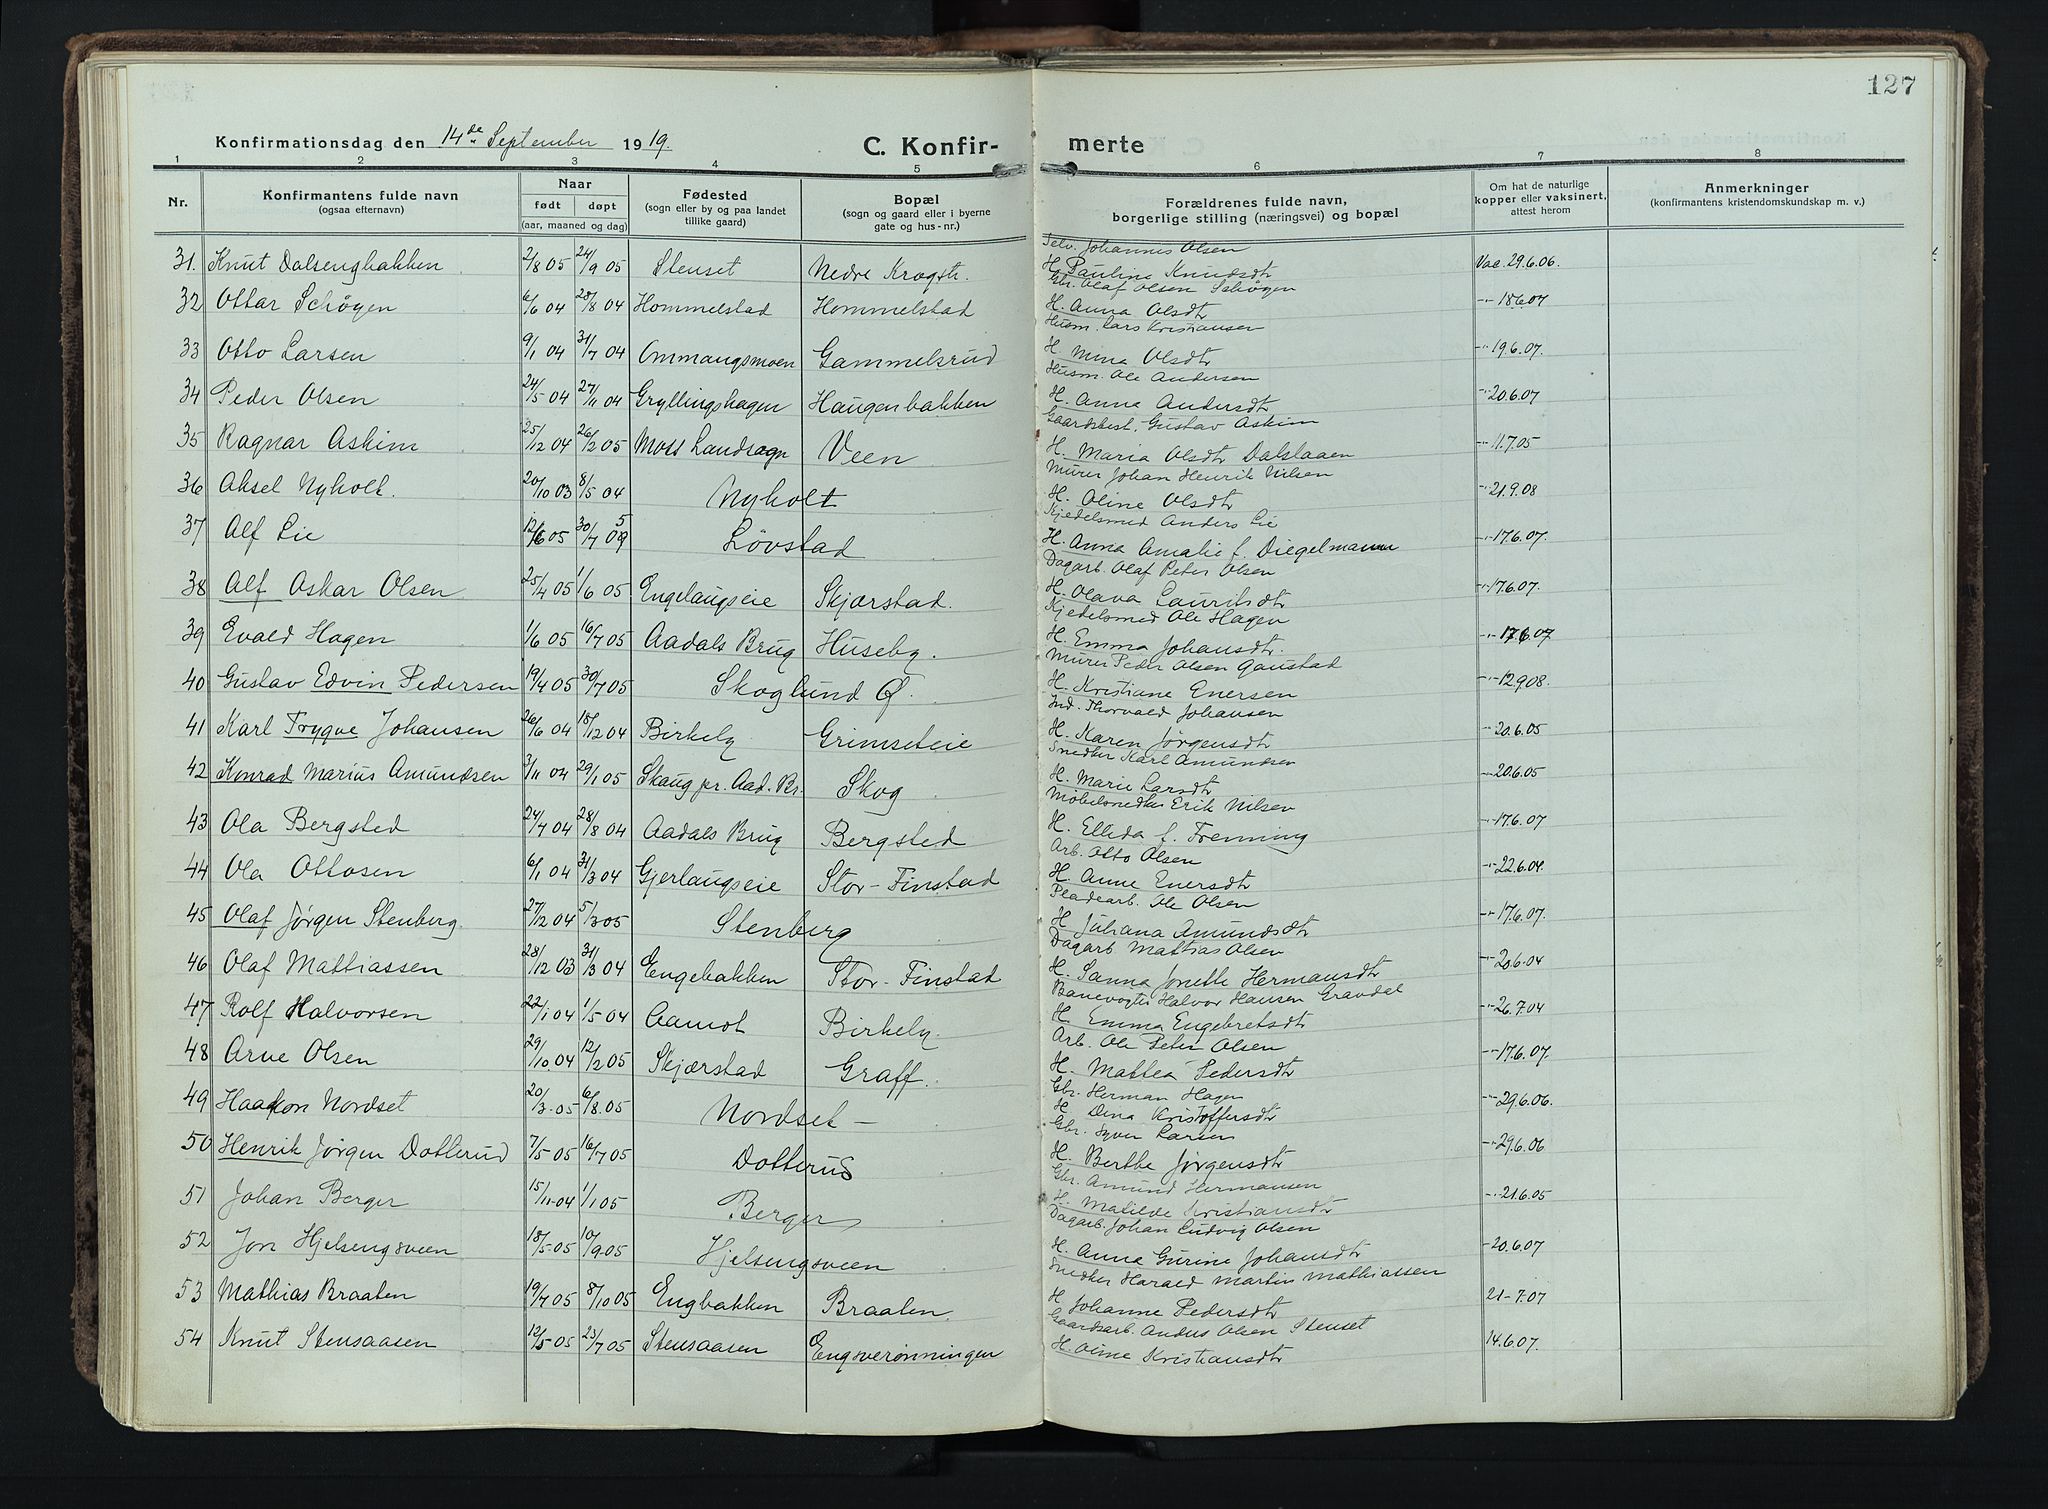 127
Konfirmationsdag den 14de September 1919.
C. Konfirmerte
1 2 3 4 5 6 7 8
Nr.
Konfirmantens fulde navn
(ogsaa efternavn)
Naar
født døpt
(aar, maaned og dag)
Fødested
(sogn eller by og paa landet
tillike gaard)
Bopæl
(sogn og gaard eller i byerne
gate og hus-nr.)
Forældrenes fulde navn,
borgerlige stilling (næringsvei) og bopæl
Om hat de naturlige
kopper eller vaksinert,
attest herom
Anmerkninger
(konfirmantens kristendomskundskap m. v.)
Selv. Johannes Olsen
31. Knut Dalsengbakken 2/8 05 24/9 05 Stenset Nedre Krogst. H. Pauline Knudsdt Vac. 29.6.06.
Gbr. Olaf Olsen Schøgen
32 Ottar Schøgen 6/6 04 28/8 04 Hommelstad Hommelstad H. Anna Olsdt -"- 18607
Husm. Lars Kristiansen
33 Otto Larsen 9/1 04 31/7 04 Ommangsmoen Gammelsrud H. Mina Olsdt -"- 19.6.07.
Husm. Ole Andersen
34 Peder Olsen 24/5 04 27/11 04 Gryllingshagen Haugenbakken H. Anna Andersdt -"- 20.6.07
Gaardsbest. Gustav Askim
35 Ragnar Askim 25/12 04 26/2 05 Moss Landsogn Veen H. Maria Olsdt Dalslaaen -"- 11.7.05
Murer Johan Henrik Nilsen
36 Aksel Nyholt. 20/10 03 8/5 04 Nyholt H. Oline Olsdt -"- 21.9.08
Kjedelsmed Anders Lie
37 Alf Lie 12/6 05 30/7 05 Løvstad H. Anna Amalie f. Diegelmann -"- 17.6.07.
Dagarb. Olaf Peter Olsen
38 Alf Oskar Olsen 25/4 05 1/6 05 Engelaugseie Skjærstad. H. Olava Lauritsdt -"- 17.6.07.
Kjedelsmed Ole Hagen
39 Evald Hagen 1/6 05 16/7 05 Aadals Brug Huseby. H. Emma Johansdt. -"- 17.6.07
Murer Peder Olsen Gaustad
40 Gustav Edvin Pedersen 19/4 05 30/7 05 Skoglund Ø. H. Kristiane Enersen -"- 12.908.
Ind. Thorvald Johansen
41 Karl Trygve Johansen 26/6 04 18/12 04 Birkely Grimseteie H. Karen Jørgensdt -"- 20.6.05
Snedker Karl Amundsen
42 Konrad Marius Amundsen 3/11 04 29/1 05 Skaug pr. Aad. Br. Skog H. Marie Larsdt -"- 20.6.05
Møbelsnedker Erik Nilsen
43 Ola Bergsted 24/7 04 28/8 04 Aadals Brug Bergsted H. Ellida f. Frenning -"- 17.6.07
Arb. Otto Olsen
44 Ola Ottosen 6/1 04 31/3 04 Gjerlaugseie Stor-Finstad H. Anne Enersdt -"- 22.6.04.
Pladearb. Ole Olsen
45 Olaf Jørgen Stenberg. 27/12 04 5/3 05 Stenberg H. Juliana Amundsdt -"- 17.6.07.
Dagarb Mattias Olsen
46 Olaf Mattiassen 28/12 03 31/3 04 Engebakken Stor-Finstad H. Sanna Jonette Hermansdt -"- 20.6.04
Banevogter Halvor Hansen Gravdal
47 Rolf Halvorsen 22/1 04 1/5 04 Aamot Birkely. H. Emma Engebretsdt -"- 26.7.04
Arb. Ole Peter Olsen
48 Arve Olsen 29/10 04 12/2 05 Skjærstad Graff. H. Mattea Pedersdt -"- 17.6.07.
Gbr. Herman Hagen
49 Haakon Nordset 20/3 05 6/8 05 Nordset - H. Dina Kristoffersdt -"- 29.6.06.
Gbr. Syver Larsen
50 Henrik Jørgen Dotterud 7/5 05 16/7 05 Dotterud H. Berthe Jørgensdt -"- 29.6.06
Gbr. Amund Hermansen
51 Johan Berger 15/11 04 1/1 05 Berger H. Matilde Kristiansdt -"- 21.6.05
Dagarb. Johan Ludvig Olsen
52 Jon Hjelsengsveen 18/5 05 10/9 05 Hjelsengsveen H. Anna Gurine Johansdt - 20.6.07
Snedker Harald Martin Mathiassen
53 Mathias Braaten 19/7 05 8/10 05 Engbakken Braaten. H. Johanne Pedersdt 21-7.07
Gaardsarb. Anders Olsen Stenset
54 Knut Stensaasen 12/5 05 23/7 05 Stensaasen Engsverønningen H. Oline Kristiansdt 14.6.07.